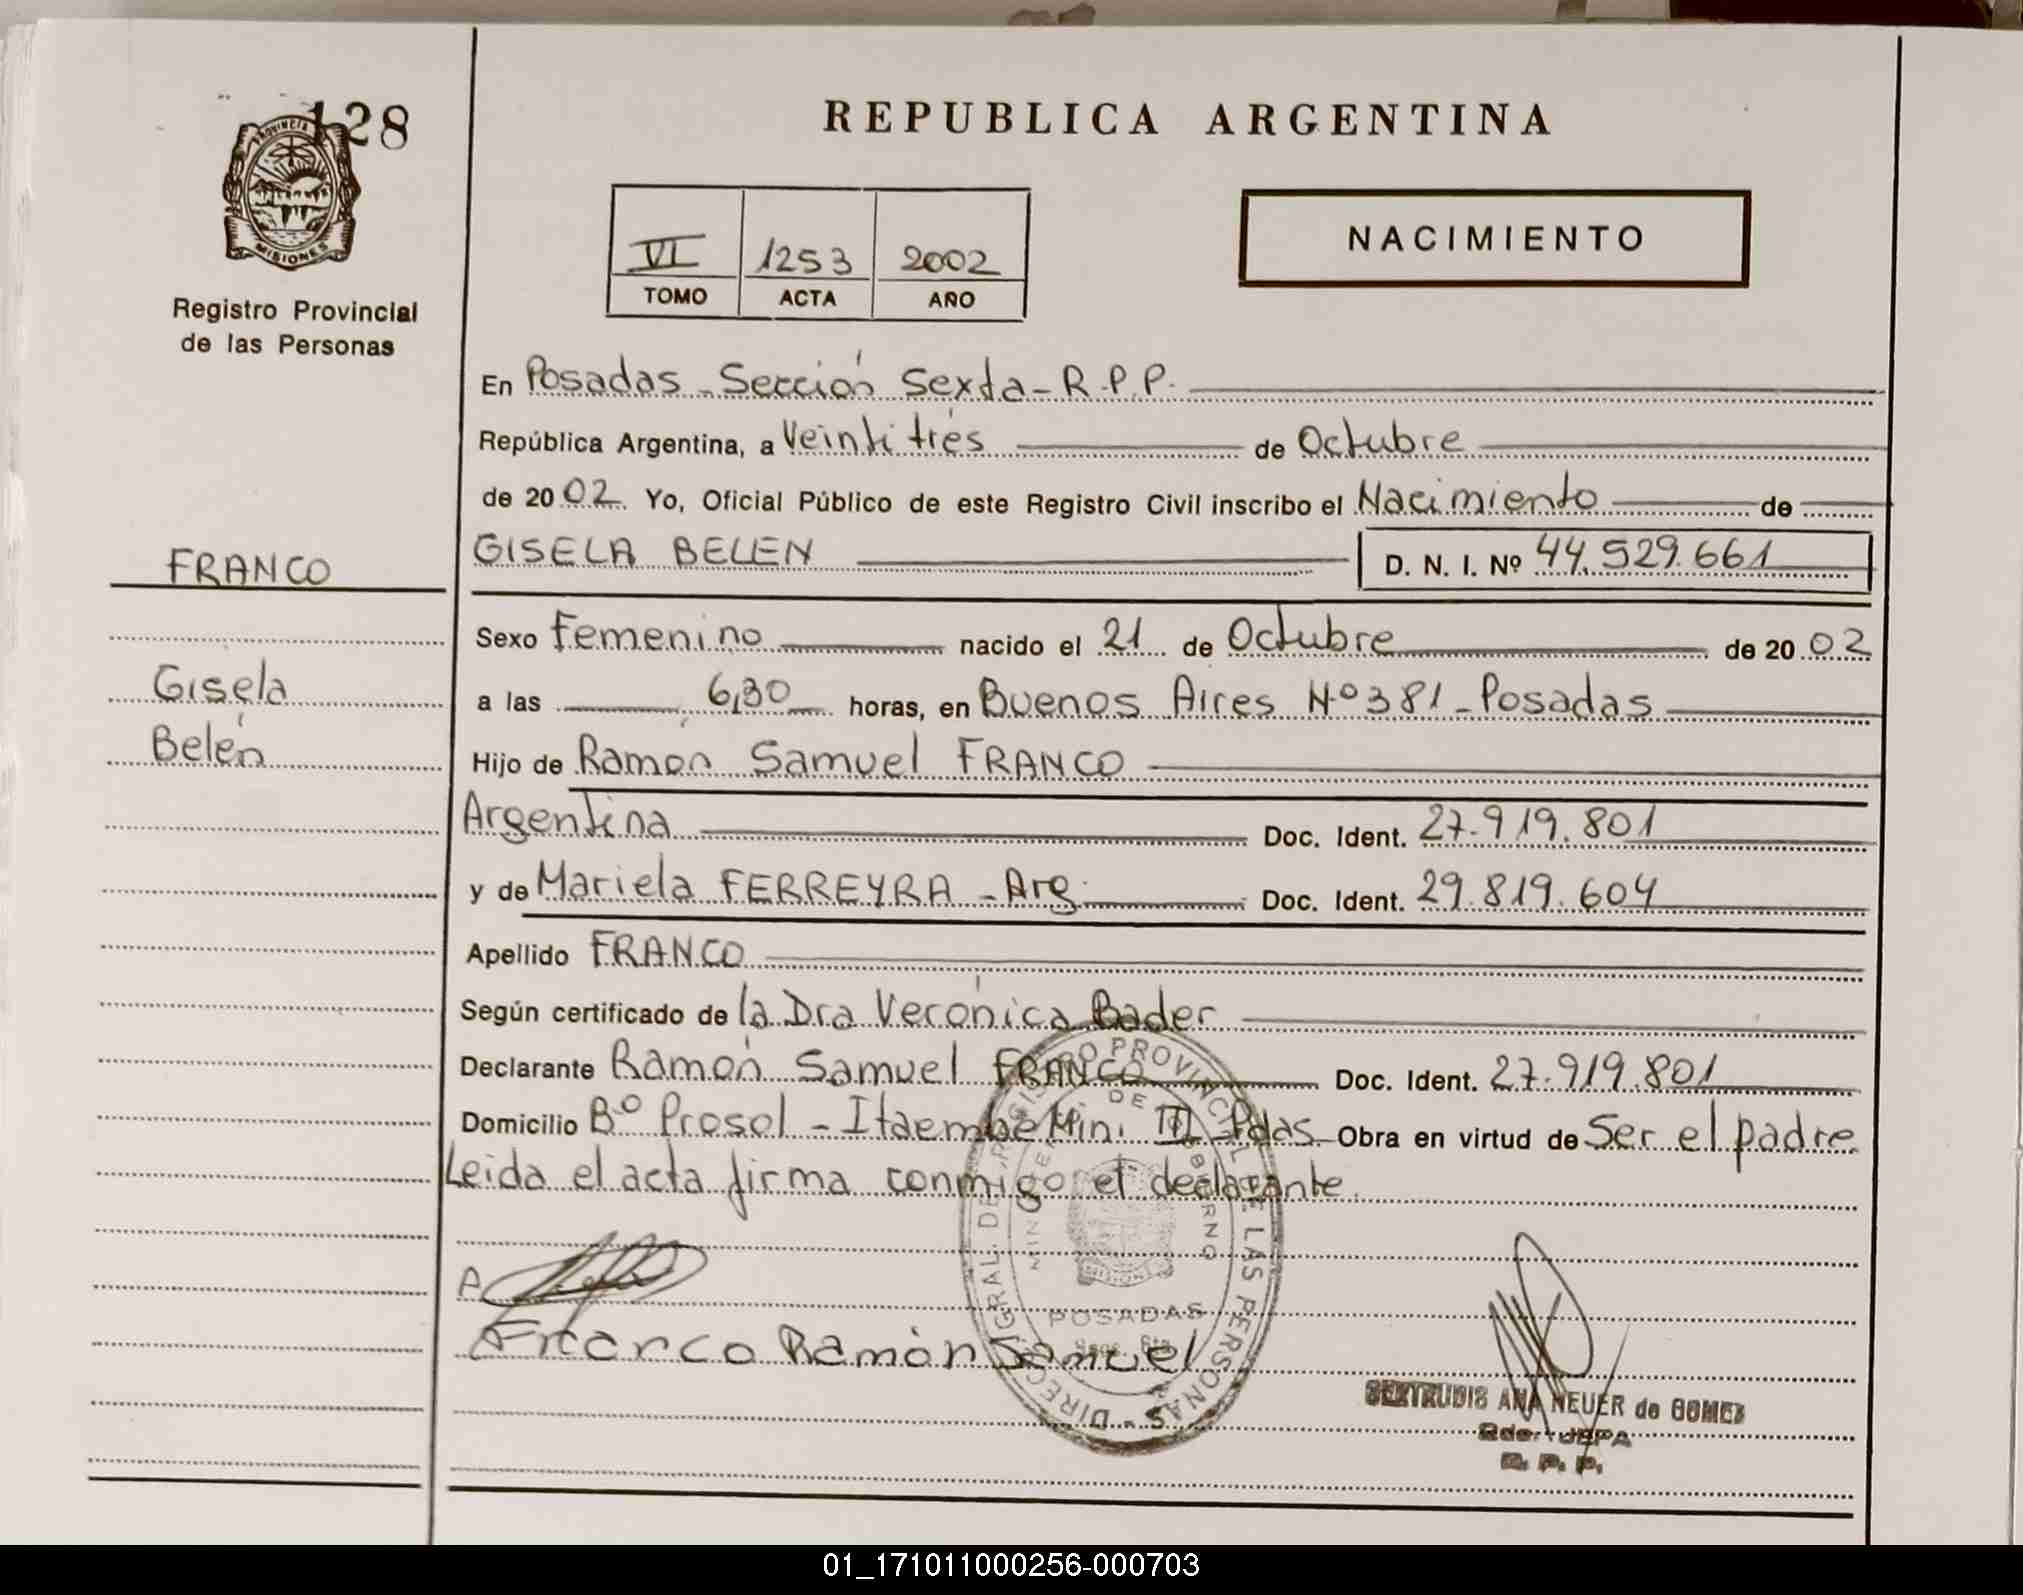 128
PROVINCIA
MISIONES
Registro Provincial
de las Personas
FRANCO
Gisela
Belén
REPUBLICA ARGENTINA
VI 1253 2002
TOMO ACTA AÑO
NACIMIENTO
En Posadas - Sección Sexta - R.P.P.
República Argentina, a Veintitrés de Octubre
de 2002 Yo, Oficial Público de este Registro Civil inscribo el Nacimiento de
GISELA BELEN D. N. I. Nº 44.529.661
Sexo Femenino nacido el 21 de Octubre de 2002
a las 6,30 horas, en Buenos Aires Nº 381 - Posadas
Hijo de Ramón Samuel FRANCO
Argentina Doc. Ident. 27.919.801
y de Mariela FERREYRA - Arg. Doc. Ident. 29.819.604
Apellido FRANCO
Según certificado de la Dra Verónica Bader
Declarante Ramón Samuel FRANCO Doc. Ident. 27.919.801
Domicilio Bº Prosol - Itaembé Mini III - Pdas - Obra en virtud de Ser el padre
Leida el acta firma conmigo el declarante.
DIREC. GRAL. DEL REGISTRO PROVINCIAL DE LAS PERSONAS
MINISTERIO DE GOBIERNO
MISIONES
POSADAS
Franco Ramón Samuel
GERTRUDIS ANA NEUER de GOMEZ
R. P. P.
01_171011000256-000703